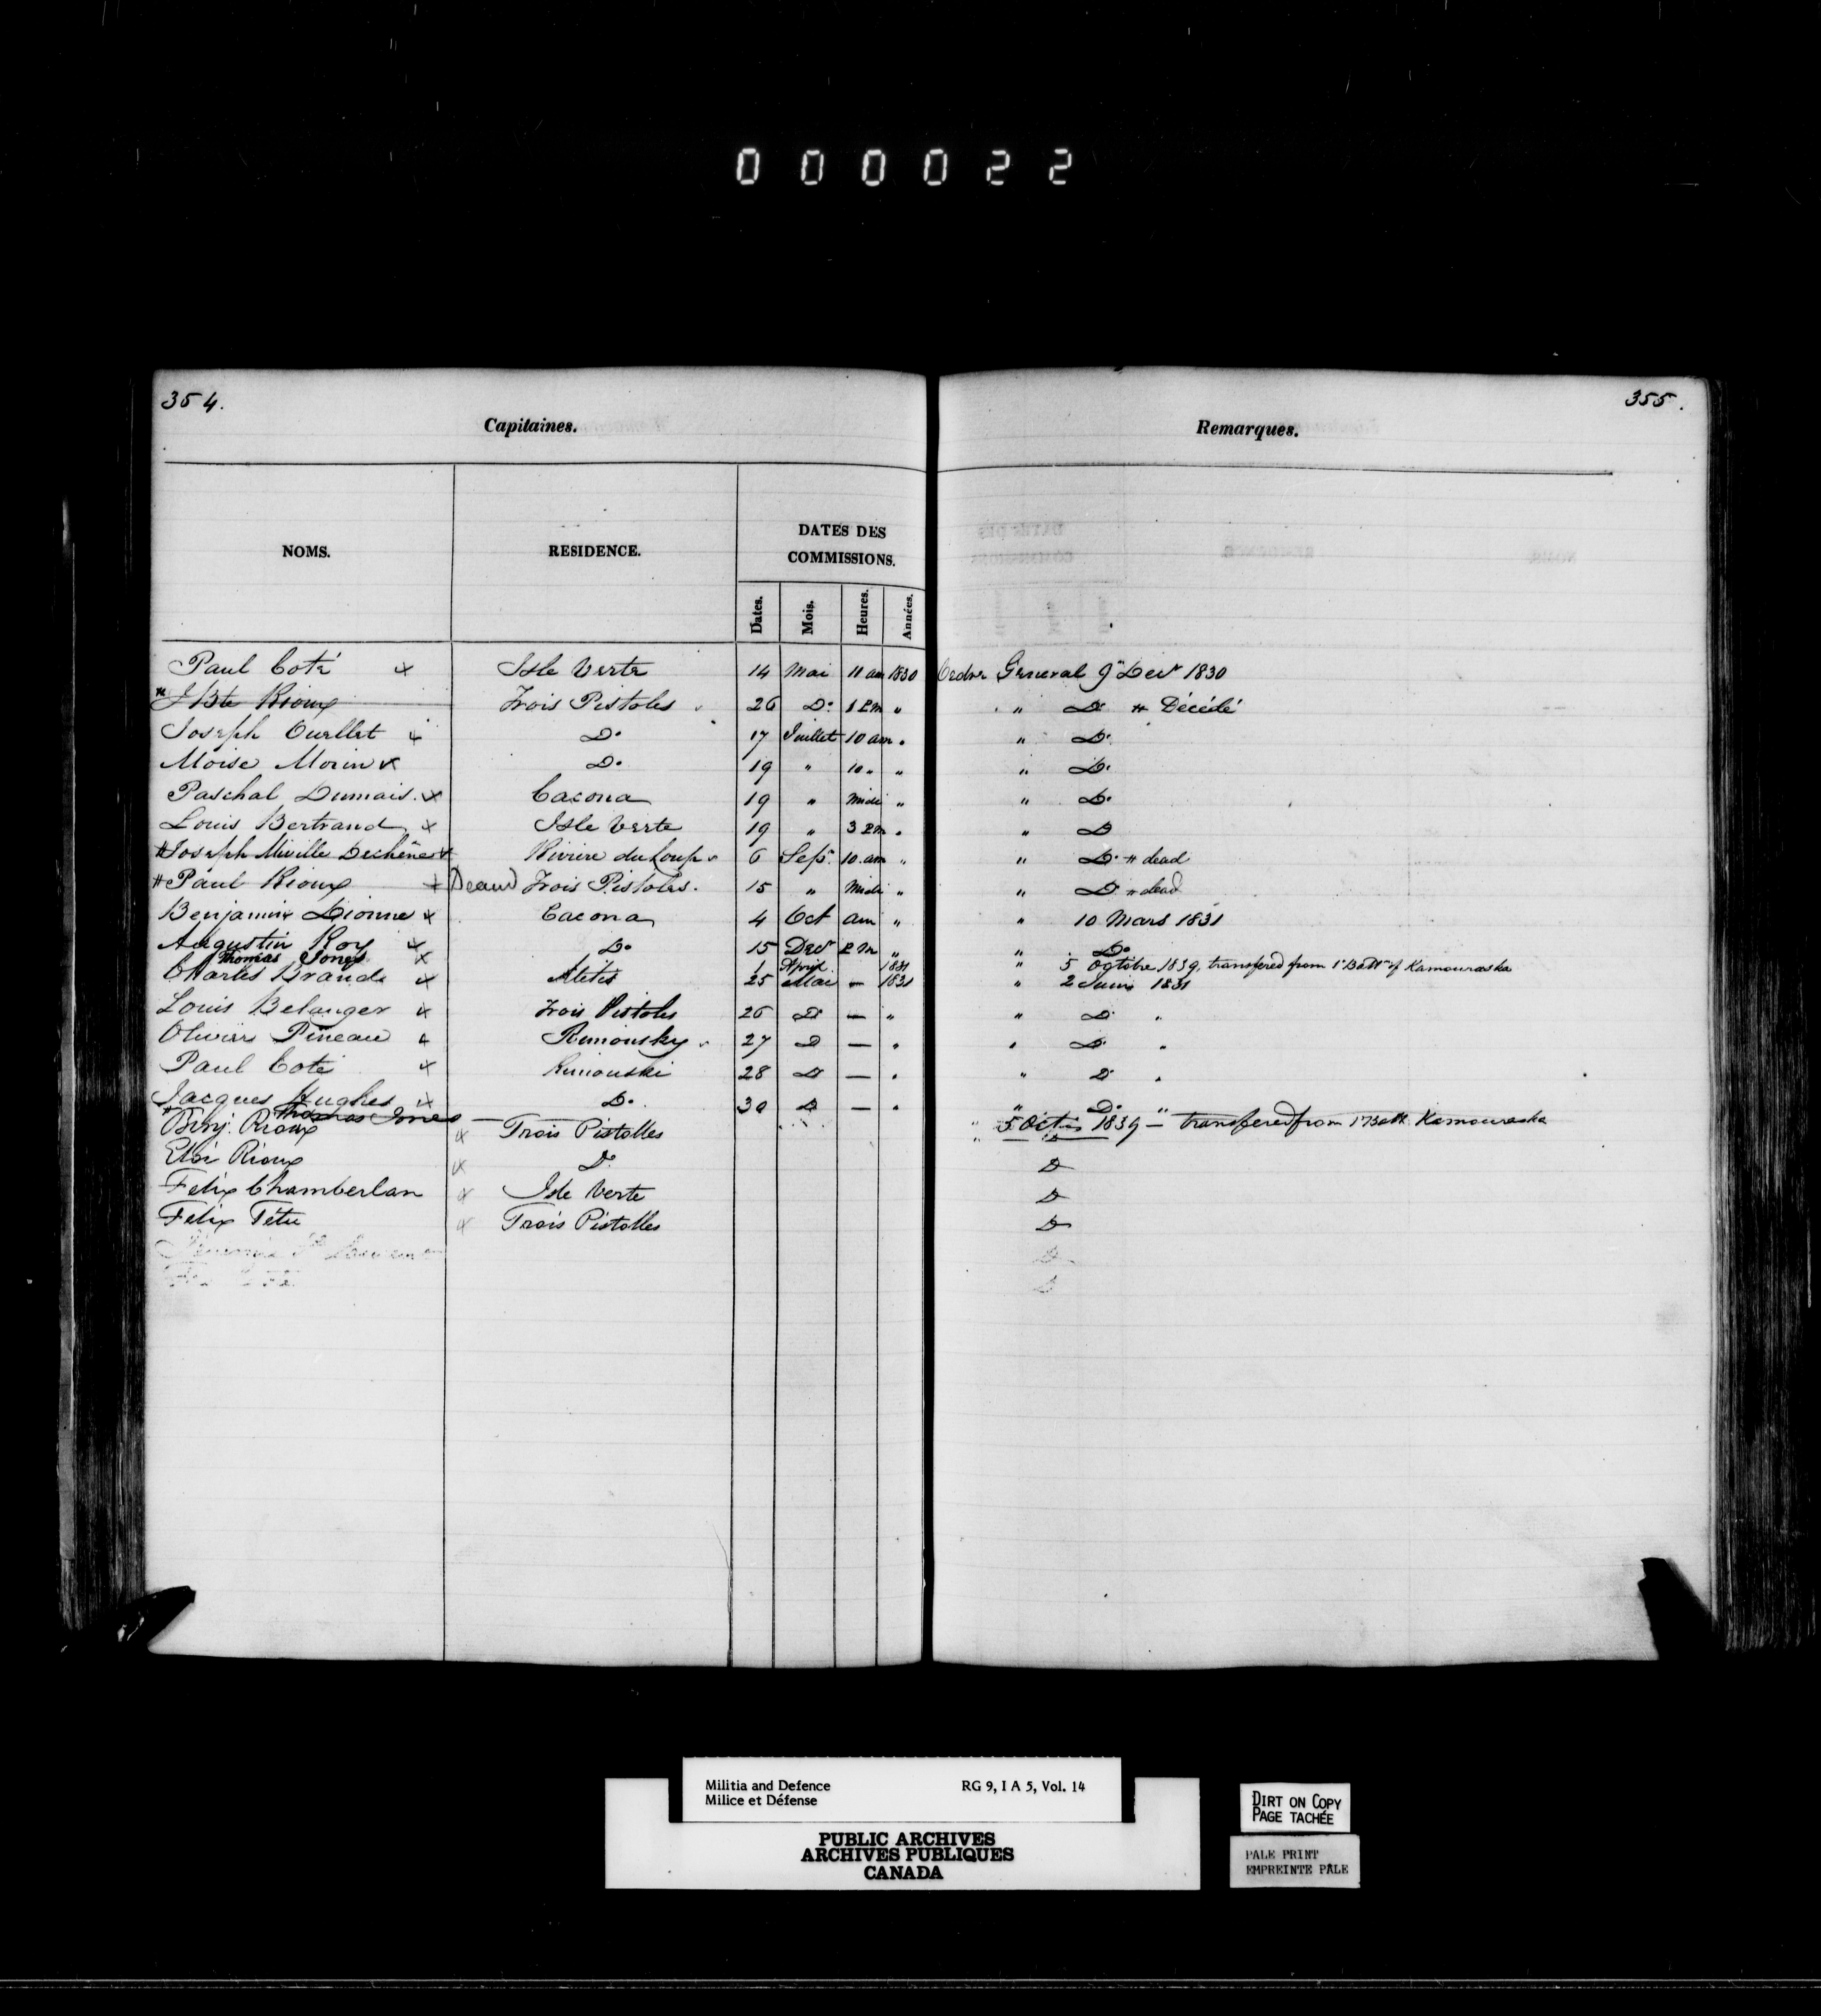 000022
354.
355.
Capitaines.
Remarques.
NOMS.
RESIDENCE.
DATES DES
COMMISSIONS.
Dates. Mois. Heures. Années.
Paul Coté x Isle Verte 14 Mai 11 am 1830 Ordre General 9 Decr 1830
* J Bte Rioux Trois Pistoles 26 Do 1 PM " " Do * Décédé
Joseph Ouellet x Do 17 Juillet 10 am " " Do
Moise Morin x Do 19 " 10 " " " Do
Paschal Dumais. x Cacona 19 " Midi " " Do
Louis Bertrand x Isle Verte 19 " 3 PM " " Do
# Joseph Miville Dechêne x Riviere du Loup 6 Sepr 10 am " " Do # dead
# Paul Rioux x Dead Trois Pistoles. 15 " Midi " " Do # dead
Benjamin Dionne x Cacona 4 Oct am " " 10 Mars 1831
Augustin Roy x Do 15 Decr PM " " Do
Thomas Jones x 1 April 1831 " 5 Octobre 1839, transfered from 1st Battn of Kamouraska
Charles Brand x Metis 25 Mai — 1831 " 2 Juin 1831
Louis Belanger x Trois Pistoles 26 Do — " " Do "
Olivier Pineau x Rimousky 27 Do — " " Do "
Paul Coté x Rimouski 28 Do — " " Do "
Jacques Hughes x Do. 30 Do — " " Do "
Thomas Jones — 5 Octr 1839 — transfered from 1st Batt. Kamouraska
Benj. Rioux x Trois Pistolles " D
Eloi Rioux x Do D
Felix Chamberlan x Isle Verte D
Felix Têtu x Trois Pistolles D
D
D
Militia and Defence
Milice et Défense
RG 9, I A 5, Vol. 14
PUBLIC ARCHIVES
ARCHIVES PUBLIQUES
CANADA
DIRT ON COPY
PAGE TACHÉE
PALE PRINT
EMPREINTE PÂLE